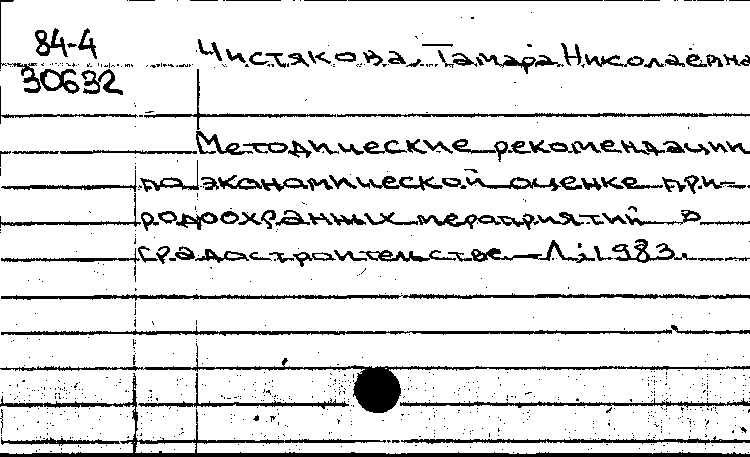 84-4
30632
Чистякова, Тамара Николаевна
Методические рекомендации
по экономической оценке при-
родоохранных мероприятий в
градостроительстве.-Л.;1983.